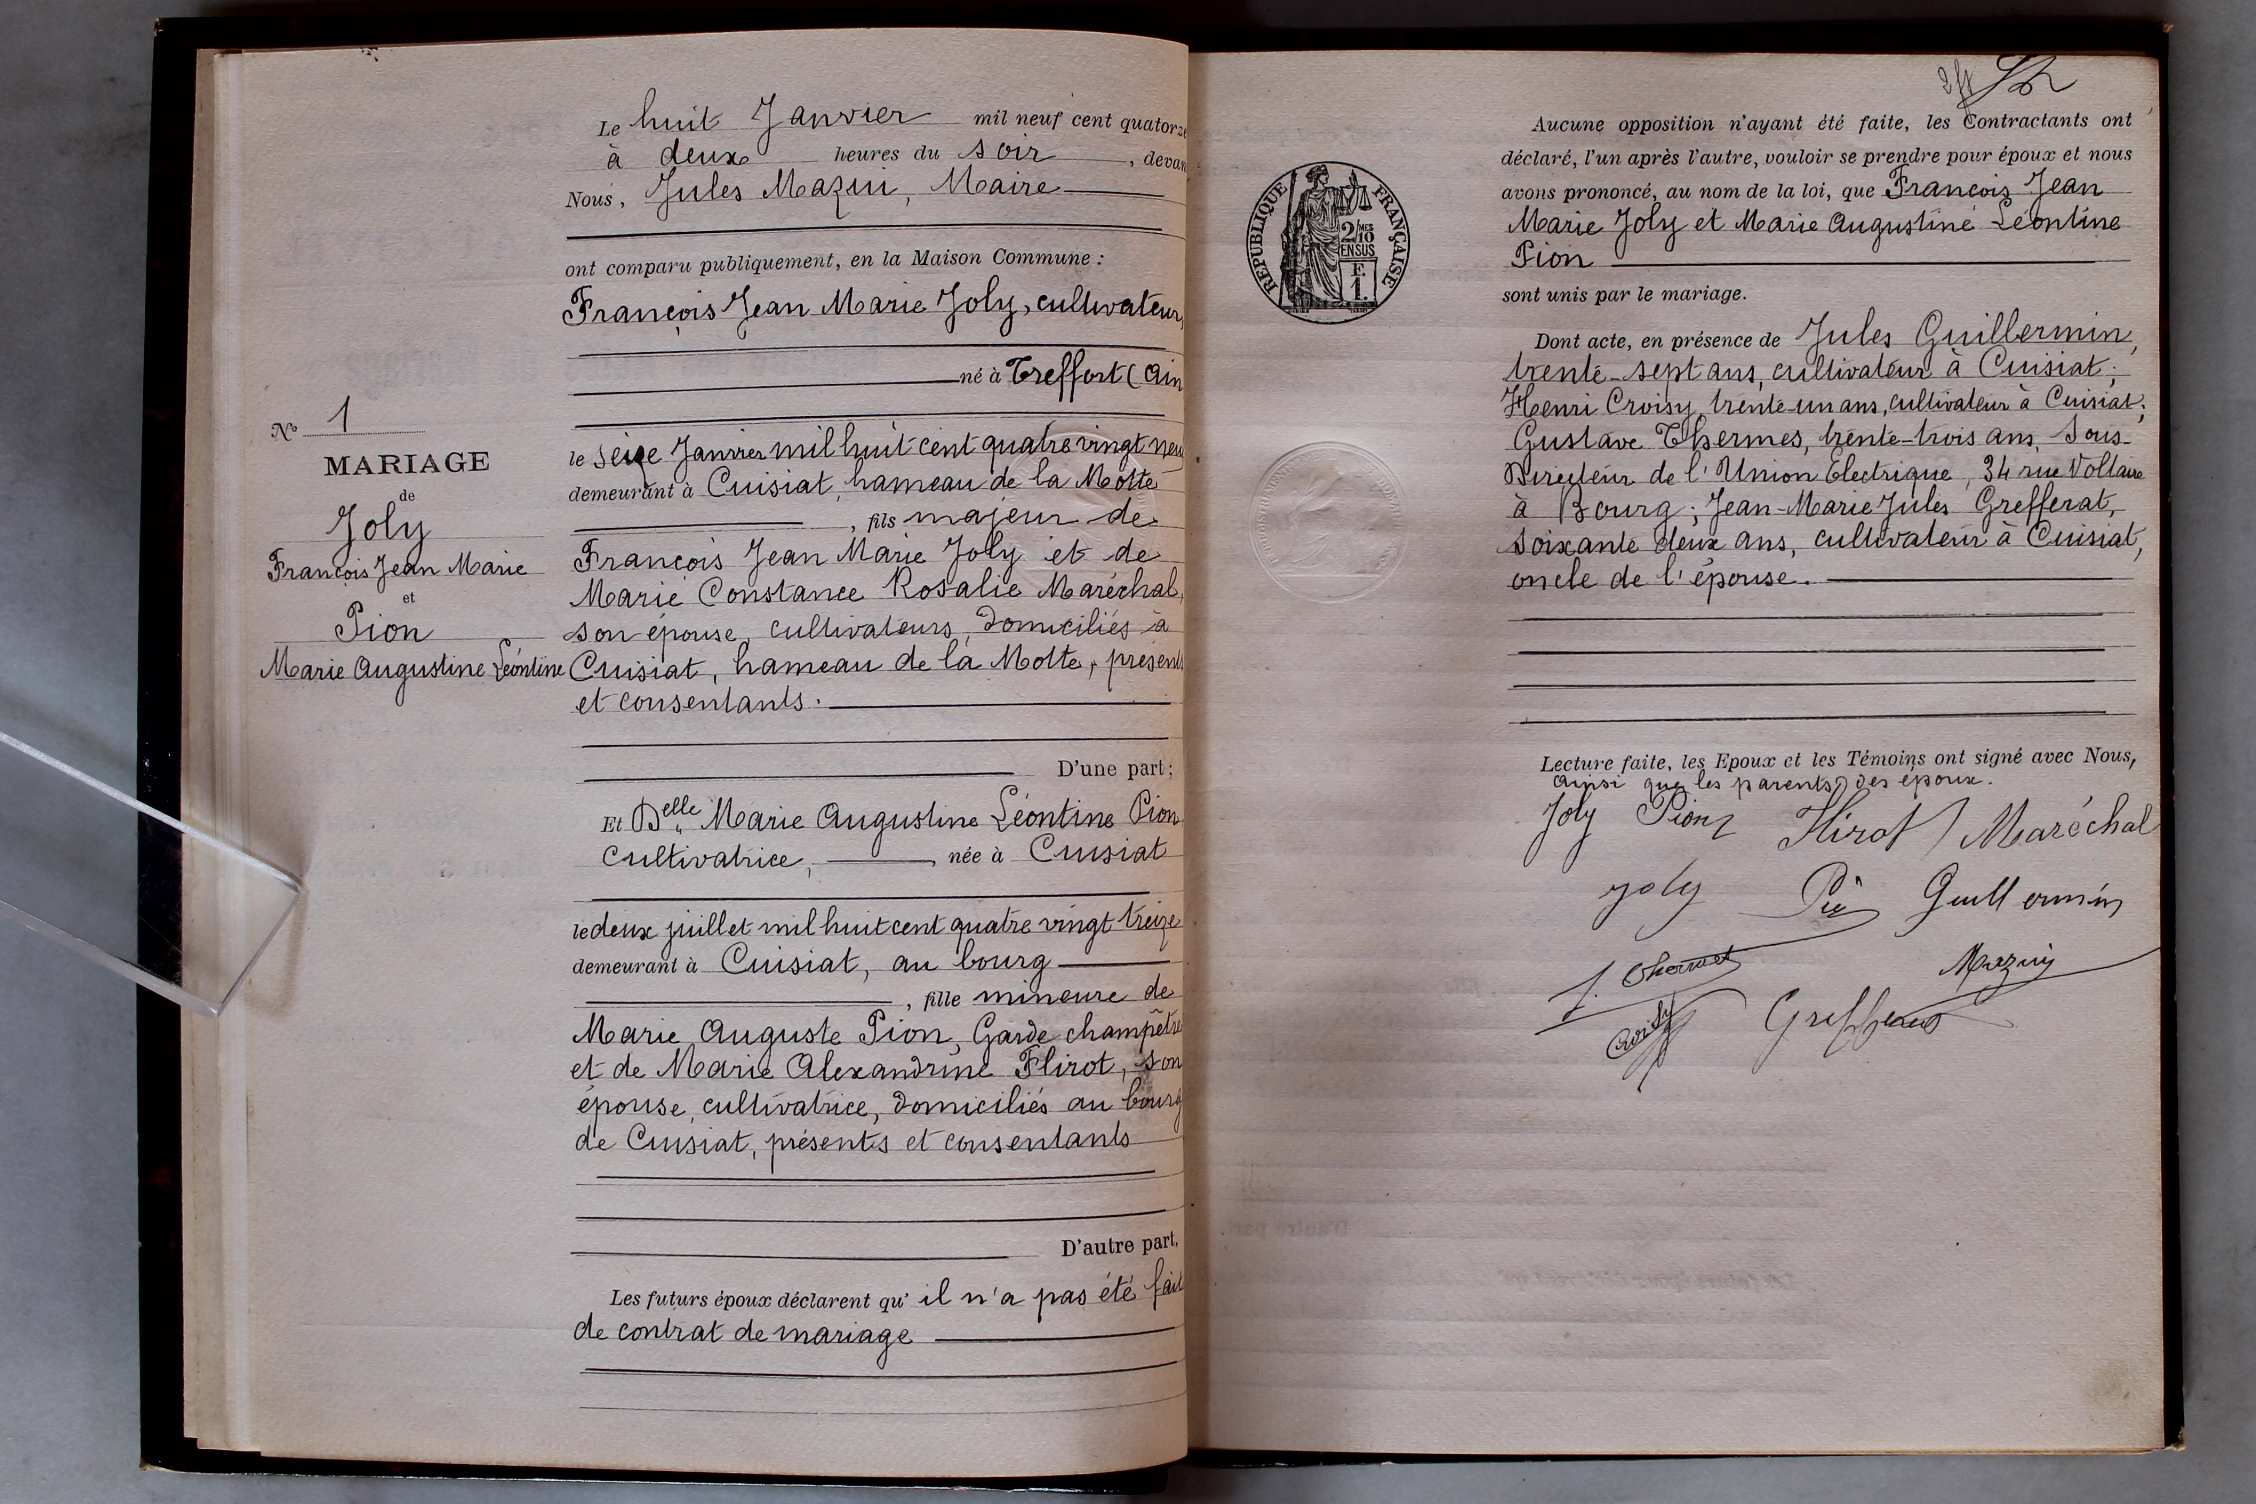 Le huit Janvier mil neuf cent quatorze
à deux heures du soir, devan
Nous, Jules Mazui, Maire
ont comparu publiquement, en la Maison Commune :
François Jean Marie Joly, cultivateur,
né à Treffort (Ain
le seize Janvier mil huit cent quatre vingt neu
demeurant à Cuisiat, hameau de la Motte
, fils majeur de
François Jean Marie Joly et de
Marie Constance Rosalie Maréchal,
son épouse, cultivateurs, domiciliés à
Cuisiat, hameau de la Motte, présents
et consentants.
D'une part ;
Et Delle Marie Augustine Léontine Pion
cultivatrice, née à Cuisiat
le deux juillet mil huit cent quatre vingt treize
demeurant à Cuisiat, au bourg
, fille mineure de
Marie Auguste Pion, Garde champêtre
et de Marie Alexandrine Flirot, son
épouse, cultivatrice, domiciliés au bourg
de Cuisiat, présents et consentants
D'autre part.
Les futurs époux déclarent qu' il n'a pas été fait
de contrat de mariage
No 1
MARIAGE
de
Joly
François Jean Marie
et
Pion
Marie Augustine Léontine
RÉPUBLIQUE FRANÇAISE
2/10 MES
EN SUS
F.
1.
Aucune opposition n'ayant été faite, les Contractants ont
déclaré, l'un après l'autre, vouloir se prendre pour époux et nous
avons prononcé, au nom de la loi, que François Jean
Marie Joly et Marie Augustine Léontine
Pion
sont unis par le mariage.
Dont acte, en présence de Jules Guillermin,
trente-sept ans, cultivateur à Cuisiat ;
Henri Croisy, trente-un ans, cultivateur à Cuisiat ;
Gustave Thermes, trente-trois ans, Sous-
Directeur de l'Union Electrique, 34 rue Voltaire
à Bourg ; Jean-Marie Jules Grefferat,
soixante deux ans, cultivateur à Cuisiat,
oncle de l'épouse.
Lecture faite, les Epoux et les Témoins ont signé avec Nous,
ainsi que les parents des époux.
Joly Pion Flirot Maréchal
Joly Guillermin
Mazuy
Croisy Grefferat